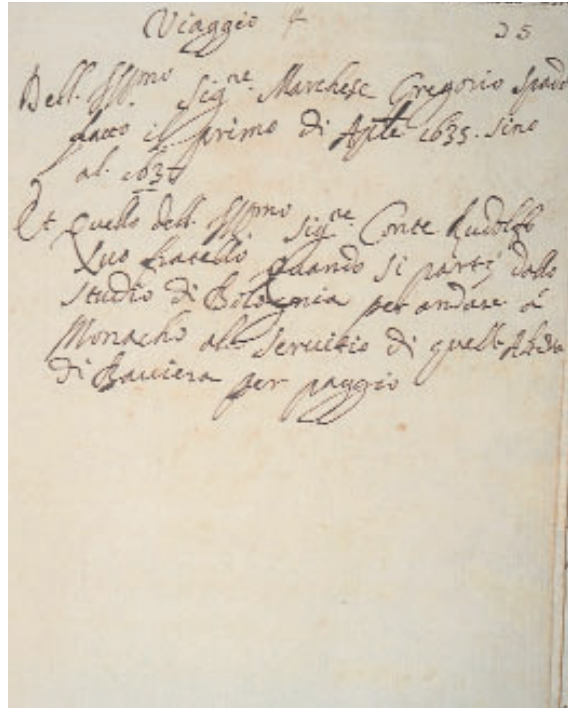 Viaggio 35
Dell. Illmo Sigre. Marchese Gregorio Spado
fatto il primo di Aple 1635. sino
al. 1637
Et quello dell. Illmo Sigre. Conte Rudolfo
suo fratello quando si partì dallo
studio di Bolognia per andare à
Monacho al seruitio di quell. Altza
di Bauiera per paggio